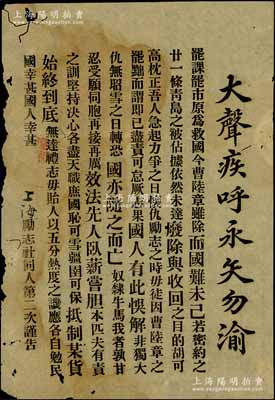 上海陽明拍賣
大聲疾呼永矢勿渝
罷課罷市原爲救國今曹陸章雖除而國難未已若密約之
廿一條靑島之被佔據依然未達廢除與收回之目的胡可
高枕正吾人急起力爭之日復仇勵志之時毋徒因曹陸章之
罷黜而謂卽已盡責可怠厥志果國人有此悞解非獨大
仇無昭雪之日轉恐國亦隨之而亡奴隸牛馬我者孰甘
忍受願同胞再接再厲效法先人臥薪嘗胆本匹夫有責
之訓堅持決心各盡天職庶國恥可雪疆圉可保抵制某貨
始終到底無違禮志毋貽人以五分熱度之譏應各自勉民
國幸甚國人幸甚
上海勵志社同人第二次謹告
上海陽明拍賣